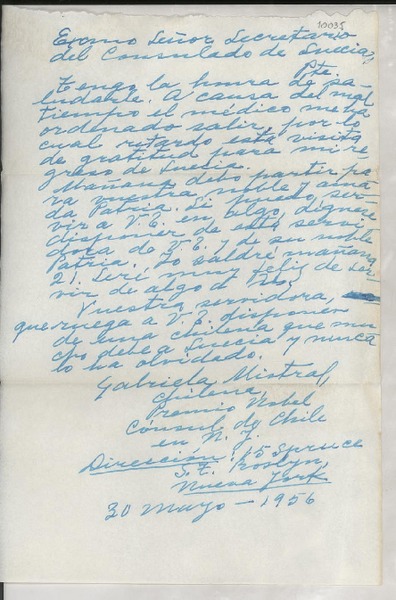 10035
Exomo Señor Secretario
del Consulado de Suecia,
Pte.
Tengo la honra de sa-
ludarle. A causa del mal
tiempo el médico me ha
ordenado salir, por lo
cual retardo esta visita
de gratitud para mi re-
greso de Suecia.
Mañana debo partir pa-
ra vuestra noble y ama-
da Patria. Si puedo ser-
vir a V.E. en algo, dígnese
disponer de esta servi-
dora de V.E. y de su noble
Patria. Yo saldré mañana
21. Seré muy feliz de ser-
vir de algo a Vos,
Vuestra servidora,
que ruega a V.E. disponer
de una chilena que mu-
cho debe a Suecia y nunca
lo ha olvidado.
Gabriela Mistral,
Chilena,
Premio Nobel
Cónsul de Chile
en N.Y.
Dirección: 15 Spruce
S.t. Roslyn,
Nueva York
30 Mayo - 1956